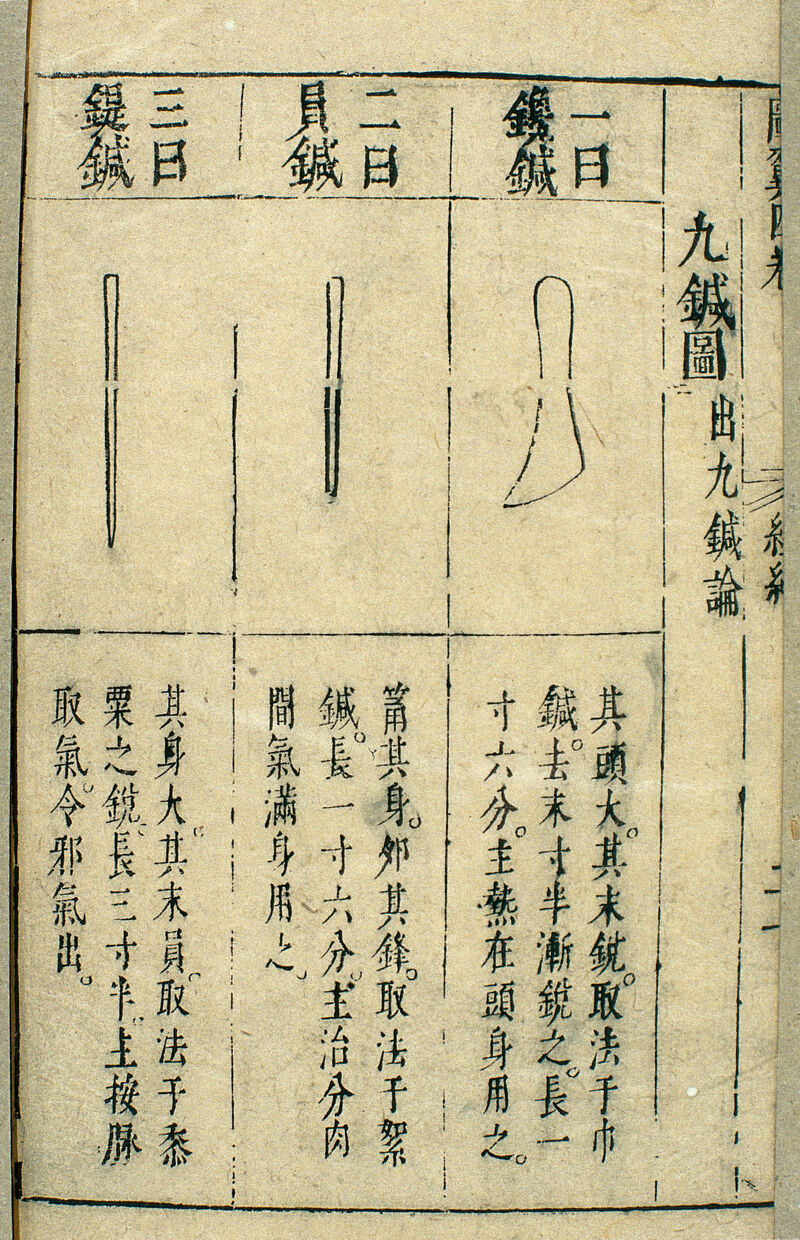 圖翼四卷
經絡
二
九鍼圖 出九鍼論
一曰
鑱鍼
其頭大。其末銳。取法于巾
鍼。去末寸半漸銳之。長一
寸六分。主熱在頭身用之。
二曰
員鍼
筩其身。夘其鋒。取法于絮
鍼。長一寸六分。主治分肉
間氣滿身用之。
三曰
鍉鍼
其身大。其末員。取法于黍
粟之銳。長三寸半。主按脉
取氣。令邪氣出。